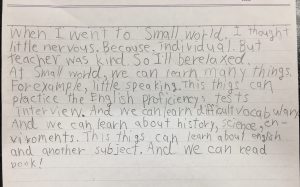 When I went to Small world, I thought
little nervous. Because, individual. But
teacher was kind. So I'll berelaxed.
At Small world, we can learn many things.
For example, little speaking. This thigs can
practice the English proficiency tests
interview. And we can learn difficult vocabulary.
And we can learn about history, science, en-
viroments. This thigs can learn about english
and another subject. And we can read
book!